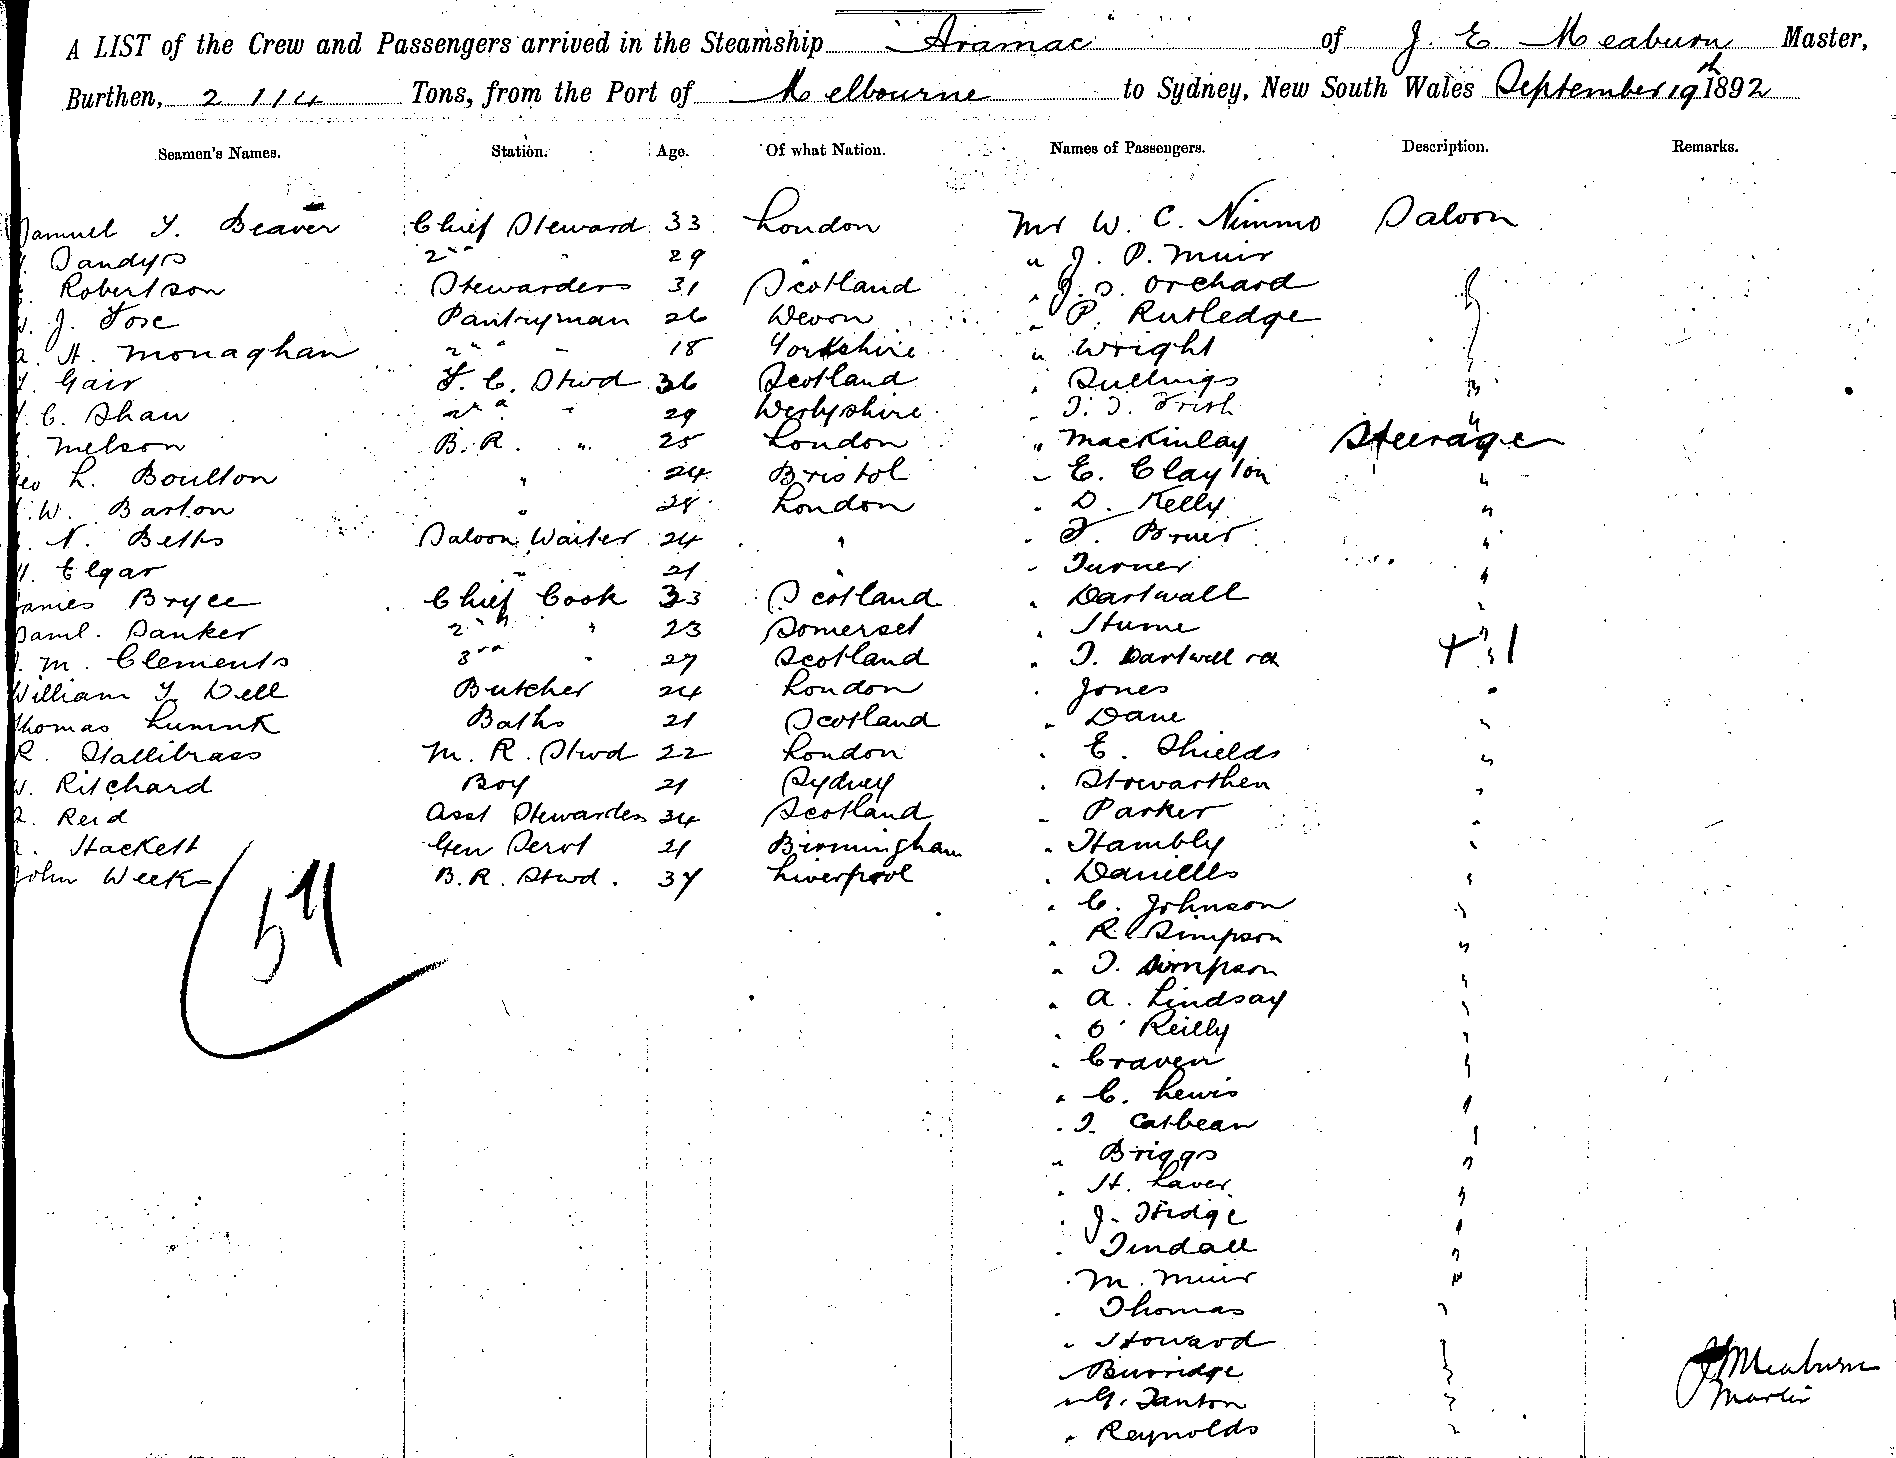 A LIST of the Crew and Passengers arrived in the Steamship Aramac of J. E. Meaburn Master,
Burthen, 2114 Tons, from the Port of Melbourne to Sydney, New South Wales September 19th 1892
Seamen's Names. Station. Age. Of what Nation. Names of Passengers. Description. Remarks.
Samuel T. Beaver Chief Steward 33 London Mr W. C. Nimmo Saloon
Sandys 2nd " 29 " " J. P. Muir
Robertson Stewardess 31 Scotland " J. S. Orchard
J. Tose Pantryman 26 Devon " P. Rutledge
A. H. Monaghan 2nd " 18 Yorkshire " Wright
Gair F. C. Stwd 36 Scotland "
C. Shaw " 29 Derbyshire "
Nelson B. R. " 25 London " Mackinlay Steerage
Geo L. Boulton " 24 Bristol " E. Clayton "
W. Barton " 28 London " D. Kelly "
N. Betts Saloon Waiter 24 " "
Elgar " 21 " " Turner "
James Bryce Chief Cook 33 Scotland " Dartwall "
Saml. Danker 2nd " 23 Somerset " Hume "
M. Clements 3rd " 27 Scotland "
William T. Dell Butcher 24 London " Jones "
Thomas Baths 21 Scotland " Dane "
R. Hallibrass M. R. Stwd 22 London " E. Shields "
Ritchard Boy 21 Sydney "
Reid Asst Stewardess 34 Scotland " Parker "
Hackett Gen Servt 21 Birmingham " Hambly "
John Weeks B. R. Stwd. 37 Liverpool " Daniells "
" C. Johnson "
57 " R. Simpson "
" T. Simpson "
" A. Lindsay "
" O'Reilly "
" Craven "
" C. Lewis "
" T. Catbean "
" Briggs "
" H. Laver "
" J. "
" Tindall "
" M. Muir "
" Thomas "
" Howard "
" Burridge " J Meaburn
" G. Tanton " Master
" Reynolds "